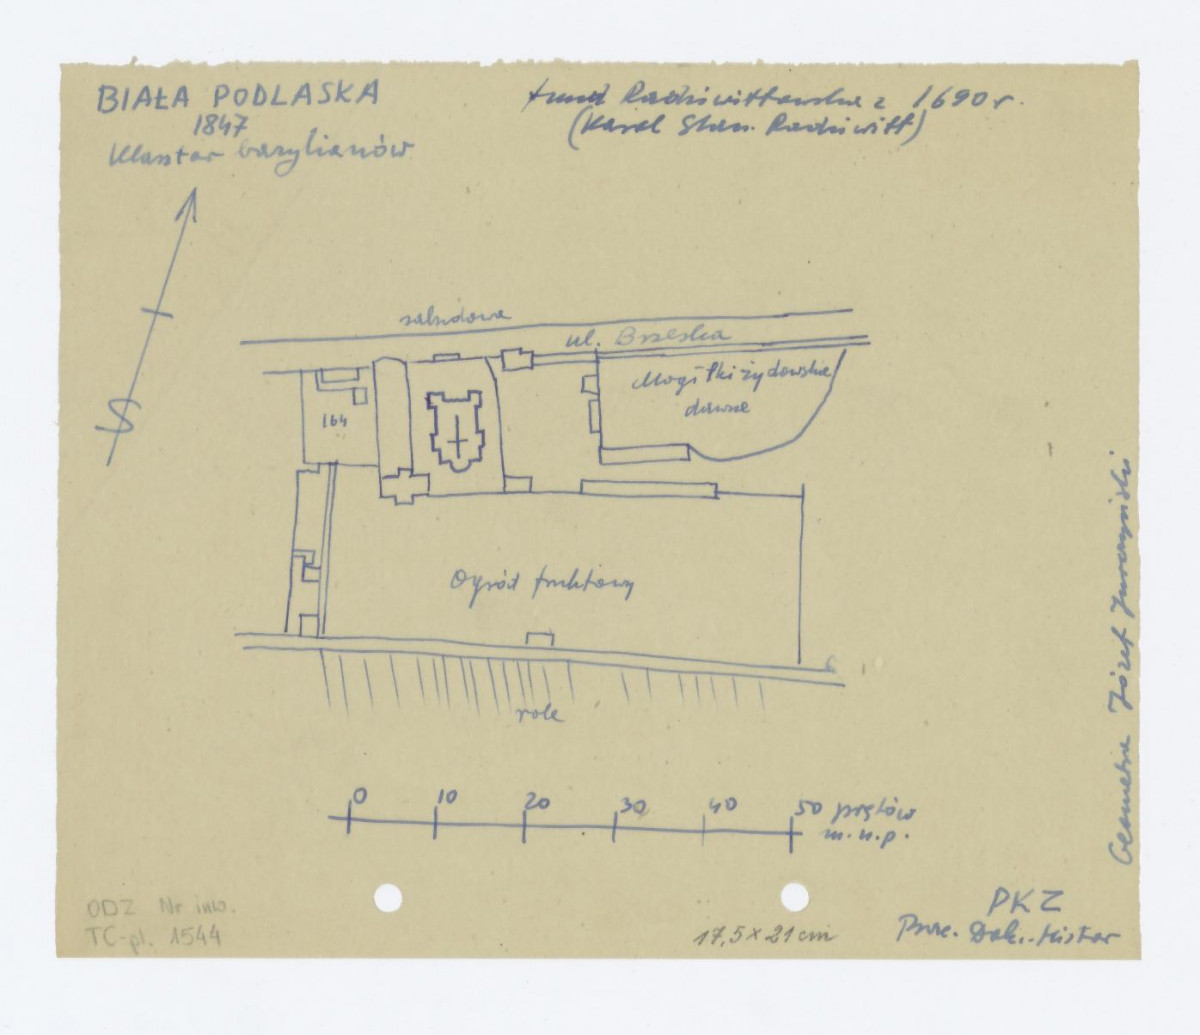 BIAŁA PODLASKA
1847
Klasztor bazylianów
fund Radziwiłłowska z 1690 r.
(Karol Stan. Radziwiłł)
zabudowa
ul. Brzeska
Mogiłki żydowskie
dawne
164
Ogród fruktowy
role
0 10 20 30 40 50 prętów
m.n.p.
Geometra Józef
ODZ Nr inw.
TC-pl. 1544
17,5 x 21 cm
PKZ
Prac. Dok. Histor